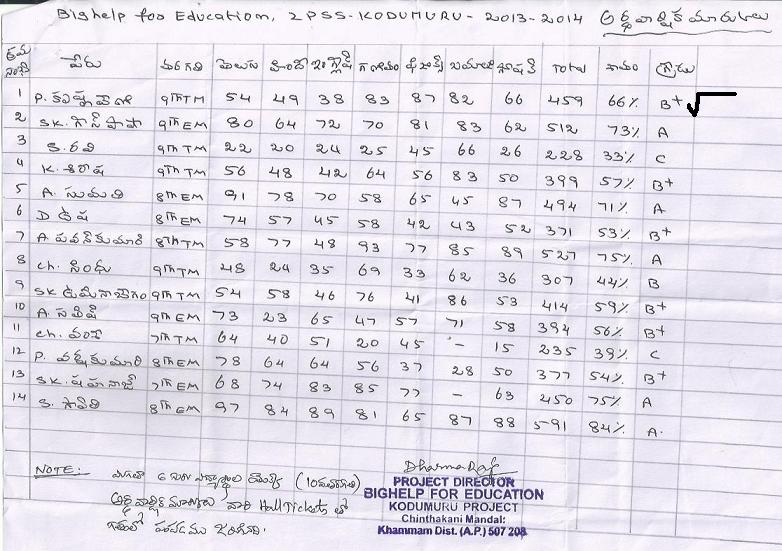 Bighelp for Education, ZPSS-KODUMURU - 2013-2014 అర్థవార్షిక మార్కులు
క్రమ సంఖ్య పేరు తరగతి తెలుగు హిందీ ఇంగ్లీష్ గణితం ఫిజిక్స్ బయాలజీ సోషల్ TOTAL శాతం గ్రేడు
1 P. 9thTM 54 49 38 83 87 82 66 459 66% B+ √
2 SK. 9thEM 80 64 72 70 81 83 62 512 73% A
3 S. రవి 9thTM 22 20 24 25 45 66 26 228 33% C
4 K. శిరీష 9thTM 56 48 42 64 56 83 50 399 57% B+
5 A. సుమతి 8thEM 91 78 70 58 65 45 87 494 71% A
6 D 8thEM 74 57 45 58 42 43 52 371 53% B+
7 A. పవన్ కుమారి 8thTM 58 77 48 93 77 85 89 527 75% A
8 Ch. సింధు 9thTM 48 24 35 69 33 62 36 307 44% B
9 SK. 9thTM 54 58 46 76 41 86 53 414 59% B+
10 A. 9thEM 73 23 65 47 57 71 58 394 56% B+
11 Ch. 7thTM 64 40 51 20 45 - 15 235 39% C
12 P. 8thEM 78 64 64 56 37 28 50 377 54% B+
13 SK. షహనాజ్ 7thEM 68 74 83 85 77 - 63 450 75% A
14 S. 8thEM 97 84 89 81 65 87 88 591 84% A.
NOTE: మిగతా 6 (10వతరగతి)
వారి Hall Tickets తో
జరిగినది.
DharmaRaj
PROJECT DIRECTOR
BIGHELP FOR EDUCATION
KODUMURU PROJECT
Chinthakani Mandal:
Khammam Dist. (A.P.) 507 208